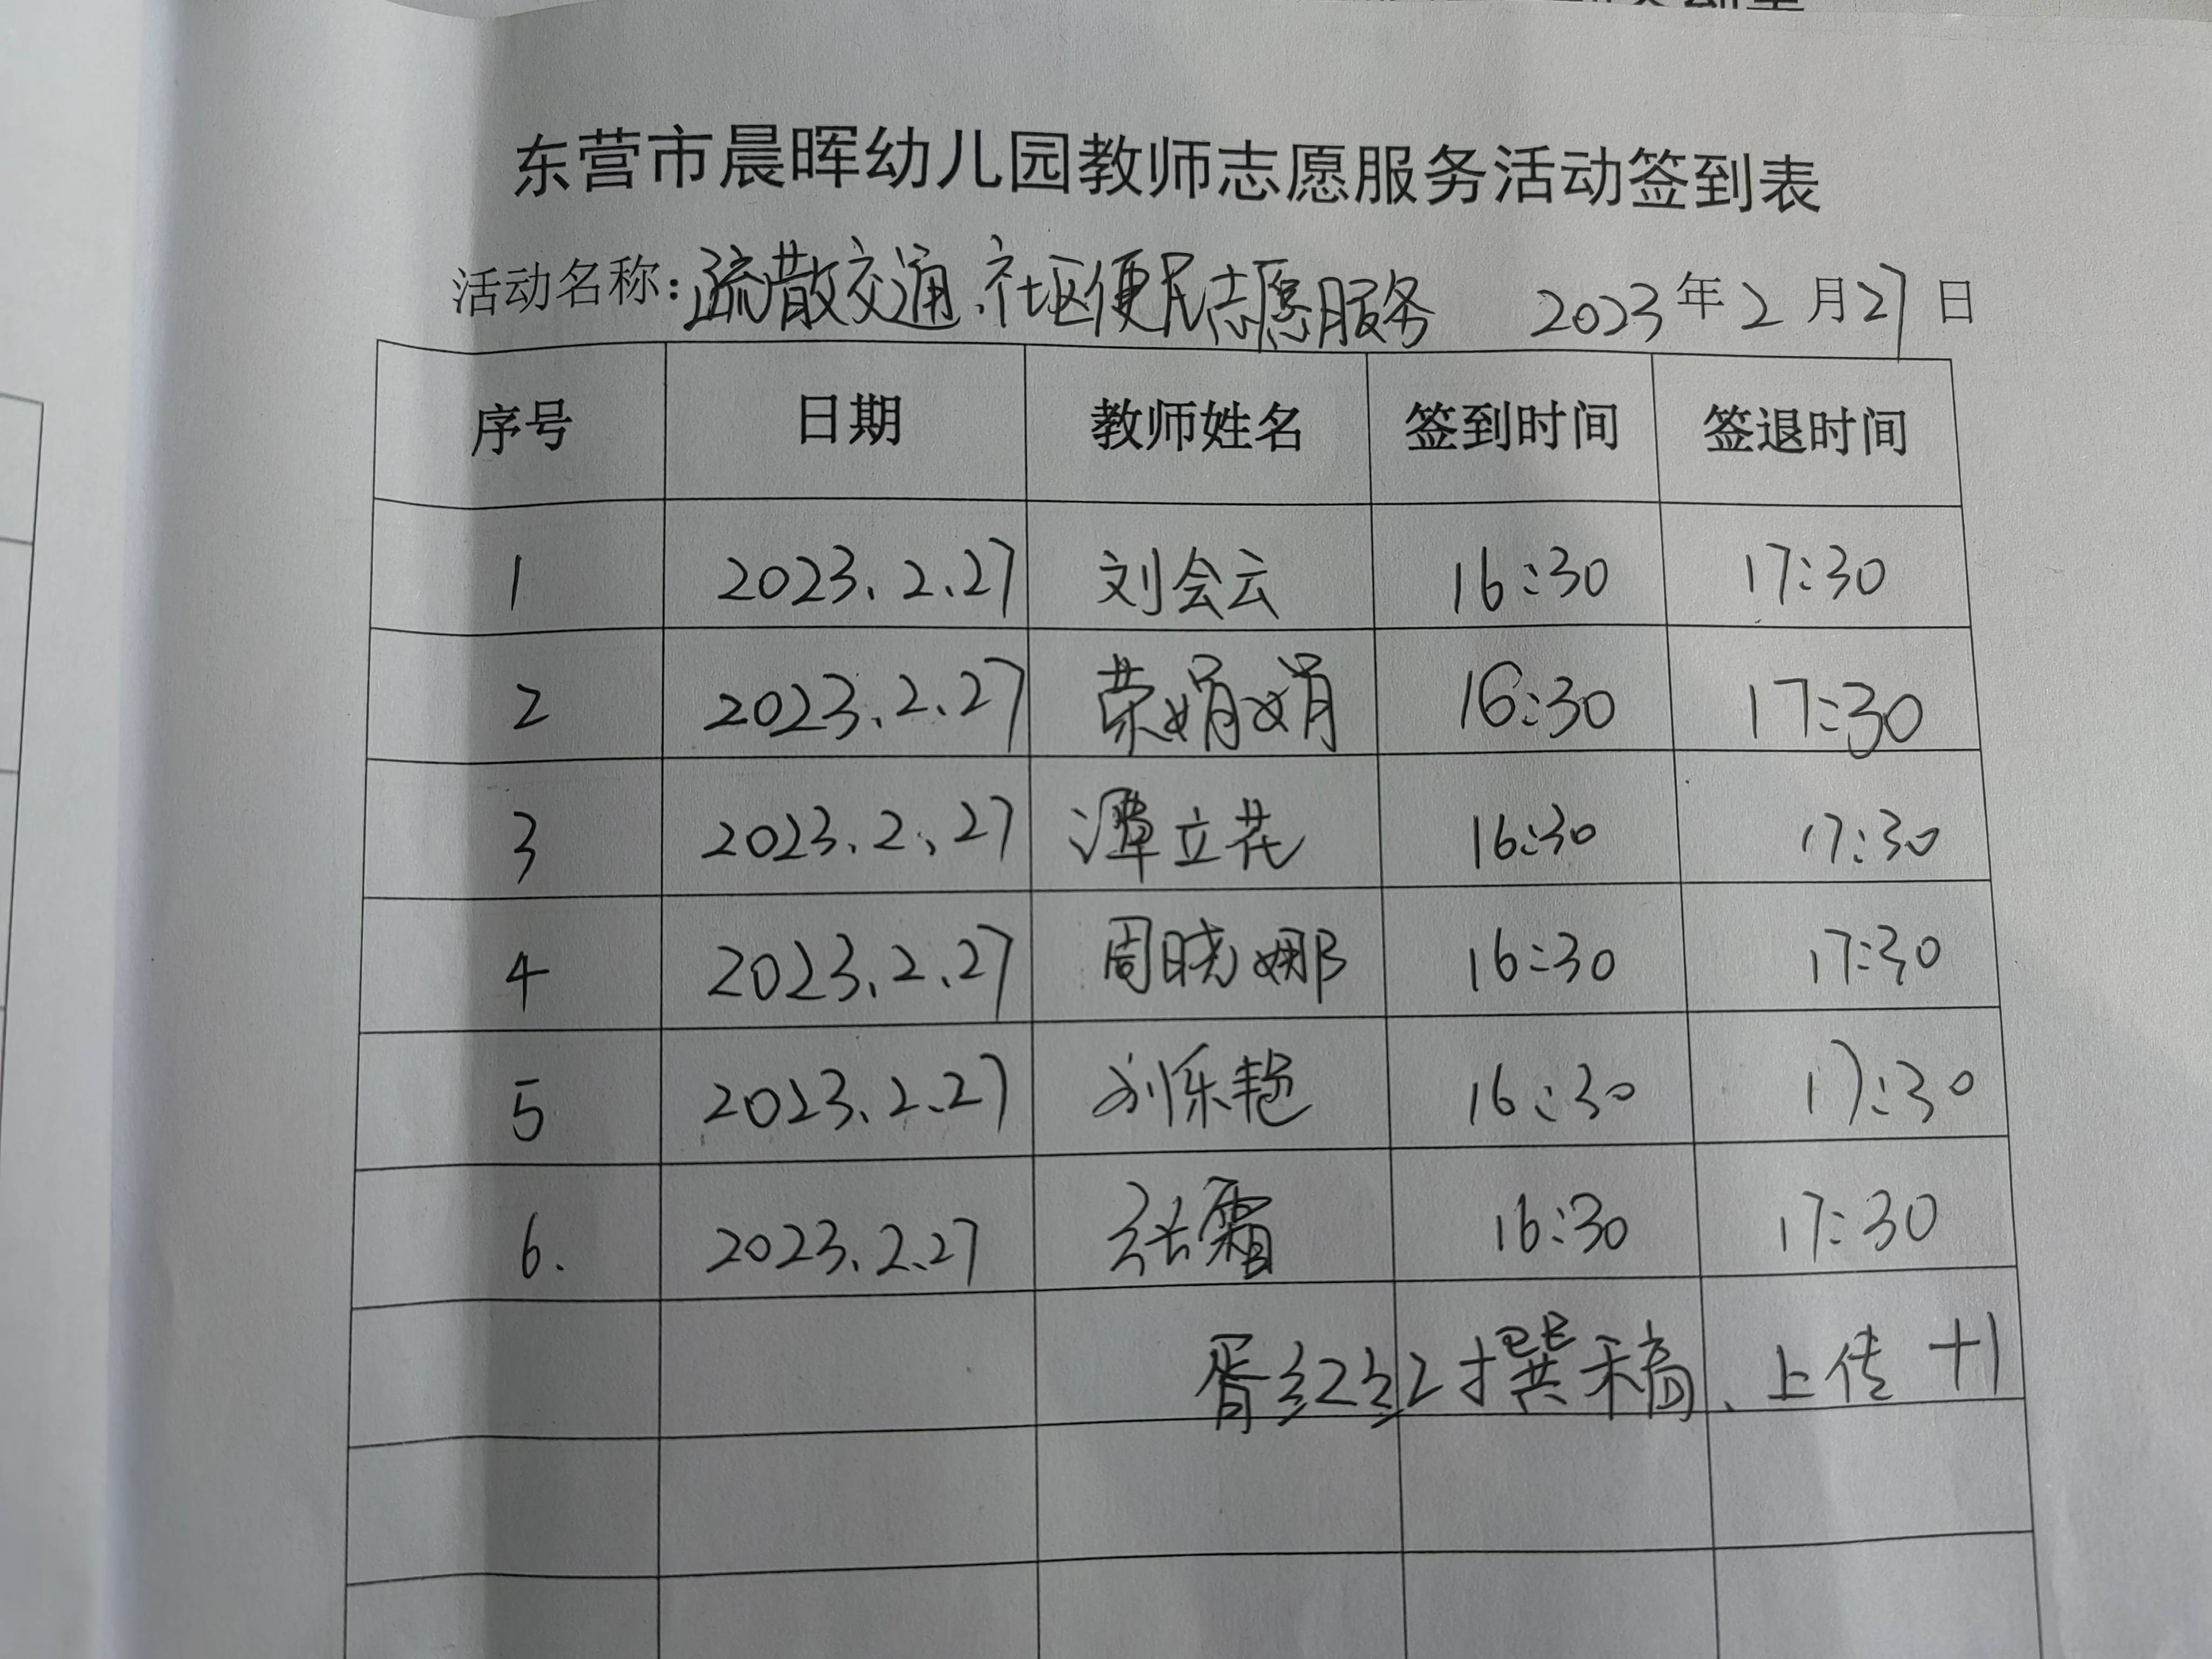 东营市晨晖幼儿园教师志愿服务活动签到表
活动名称:疏散交通、社区便民志愿服务 2023年2月27日
序号 日期 教师姓名 签到时间 签退时间
1 2023.2.27 刘会云 16:30 17:30
2 2023.2.27 荣娟娟 16:30 17:30
3 2023.2.27 谭立花 16:30 17:30
4 2023.2.27 周晓娜 16:30 17:30
5 2023.2.27 刘乐艳 16:30 17:30
6. 2023.2.27 张霜 16:30 17:30
胥红红撰稿、上传+1